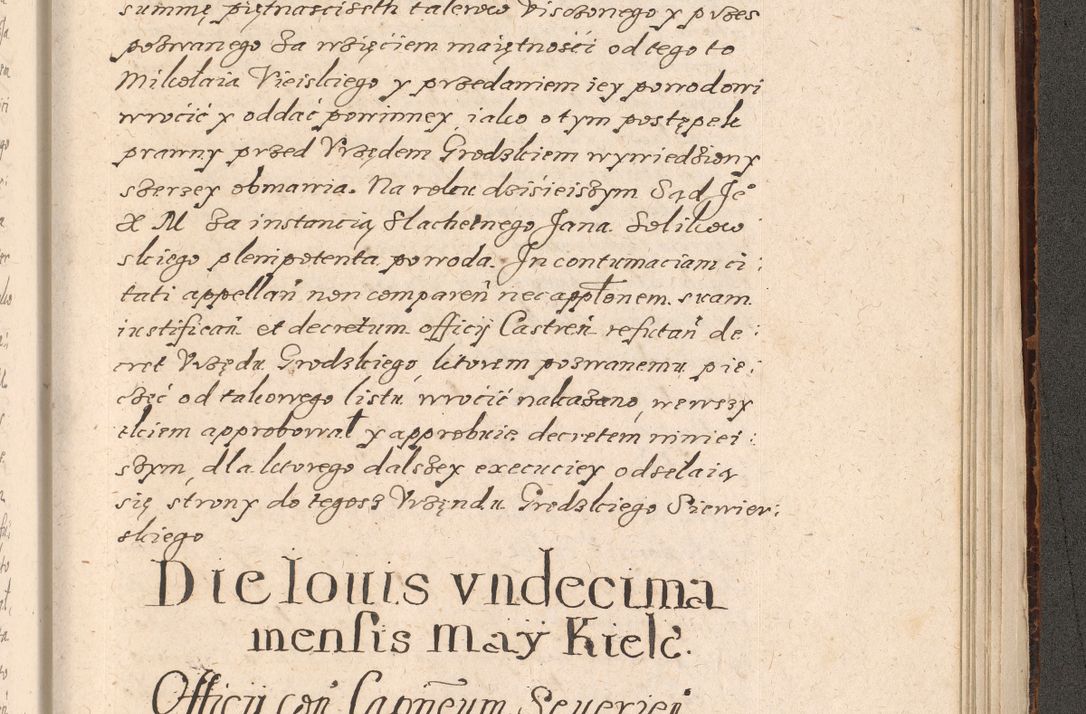 summę piętnasciseth talerow visczonego y przes
pozwanego za wzięciem maiętności od tego to
Mikołaia Vieiskiego y przedaniem iey powodowi
wrocić y oddać powinney, iako o tym postępek
prawny przed Vrzędem Grodzkiem wywiedziony
szerzey obmawia. Na roku dzisieiszym Sąd Je°
X M za instancią Slachetnego Jana Solikow
skiego plenipotenta powoda. In contumaciam ci:
tati appellań non compareń nec appłonem suam
iustificań et decretum officij Castreń refutań de:
cret Vrzędu Grodzkiego, ktorem pozwanemu pie:
częć od takowego listu, wrocić nakazano, we wszy
stkiem approbował y approbuie decretem niniei:
szym, dla ktorego dalszey executiey odselaią
się strony do tegosz Vrzęndu Grodzkiego Siewier:
skiego
Die Iouis vndecima
mensis Maÿ Kielc.
Officij coń Capneum Seuerień